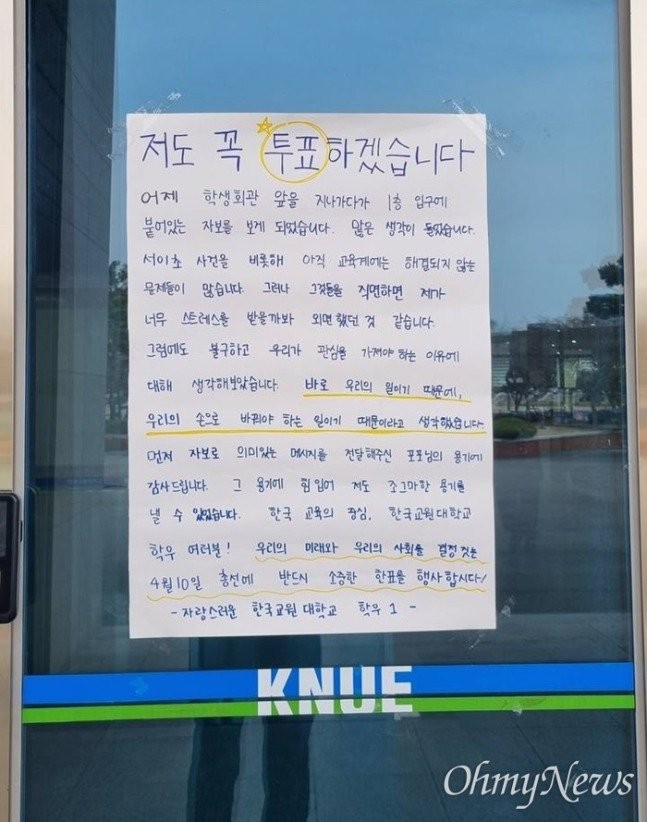 저도 꼭 투표하겠습니다
어제 학생회관 앞을 지나가다가 1층 입구에
붙어있는 자보를 보게 되었습니다. 많은 생각이 들었습니다.
서이초 사건을 비롯해 아직 교육계에는 해결되지 않는
문제들이 많습니다. 그러나 그것들을 직면하면 제가
너무 스트레스를 받을까봐 외면했던 것 같습니다.
그럼에도 불구하고 우리가 관심을 가져야 하는 이유에
대해 생각해보았습니다. 바로 우리의 일이기 때문에,
우리의 손으로 바꿔야 하는 일이기 때문이라고 생각했습니다.
먼저 자보로 의미있는 메시지를 전달해주신 포포님의 용기에
감사드립니다. 그 용기에 힘입어 저도 조그마한 용기를
낼 수 있었습니다. 한국 교육의 중심, 한국교원대학교
학우 여러분! 우리의 미래와 우리의 사회를 결정 짓는
4월 10일 총선에 반드시 소중한 한표를 행사합시다!
- 자랑스러운 한국교원대학교 학우 1 -
KNUE
OhmyNews